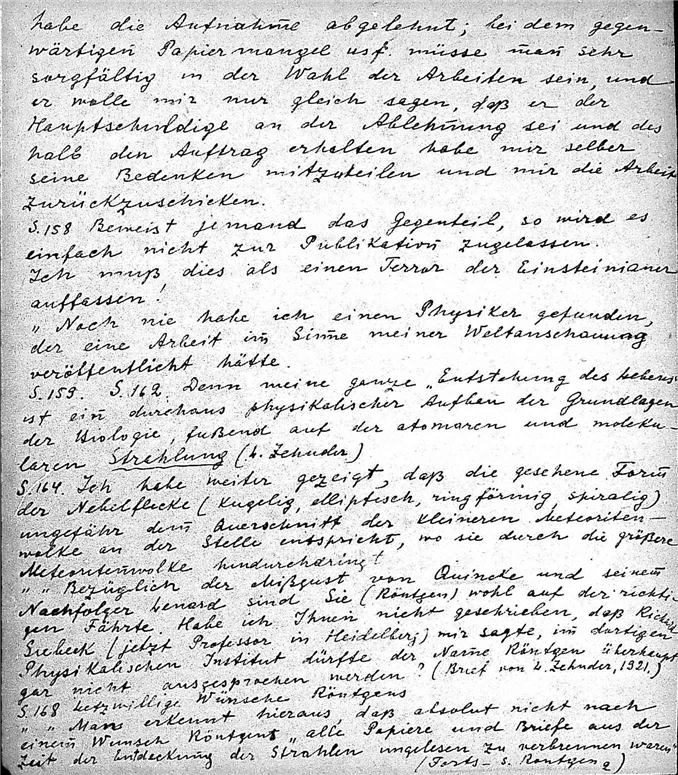 habe die Aufnahme abgelehnt; bei dem gegen-
wärtigen Papiermangel usf. müsse man sehr
sorgfältig in der Wahl der Arbeiten sein, und
er wolle mir nur gleich sagen, daß er der
Hauptschuldige an der Ablehnung sei und des
halb den Auftrag erhalten habe mir selber
seine Bedenken mitzuteilen und mir die Arbeit
zurückzuschicken.
S.158 Beweist jemand das Gegenteil, so wird es
einfach nicht zur Publikation zugelassen.
Ich muß dies als einen Terror der Einsteinianer
auffassen!
„ Noch nie habe ich einen Physiker gefunden,
der eine Arbeit im Sinne meiner Weltanschauung
veröffentlicht hätte.
S.159. S.162. Denn meine ganze „Entstehung des Lebens"
ist ein durchaus physikalischer Aufbau der Grundlagen
der Biologie, fußend auf der atomaren und moleku-
laren Strahlung (L. Zehnder)
S.164. Ich habe weiter gezeigt, daß die gesehene Form
der Nebelflecke (kugelig, elliptisch, ringförmig spiralig)
ungefähr dem Querschnitt der kleineren Meteoriten-
wolke an der Stelle entspricht, wo sie durch die größere
Meteoritenwolke hindurchdringt
„ „ Bezüglich der Mißgust von Quincke und seinem
Nachfolger Lenard sind Sie (Röntgen) wohl auf der richti-
gen Fährte. Habe ich Ihnen nicht geschrieben, daß Richard
Siebeck (jetzt Professor in Heidelberg) mir sagte, im dortigen
Physikalischen Institut dürfte der Name Röntgen überhaupt
gar nicht ausgesprochen werden? (Brief von L. Zehnder, 1921.)
S.168 Letzwillige Wünsche Röntgens
„ „ Man erkennt hieraus, daß absolut nicht nach
einem Wunsch Röntgens „alle Papiere und Briefe aus der
Zeit der Entdeckung der Strahlen ungelesen zu verbrennen waren"
(Forts- s. Röntgen 2)